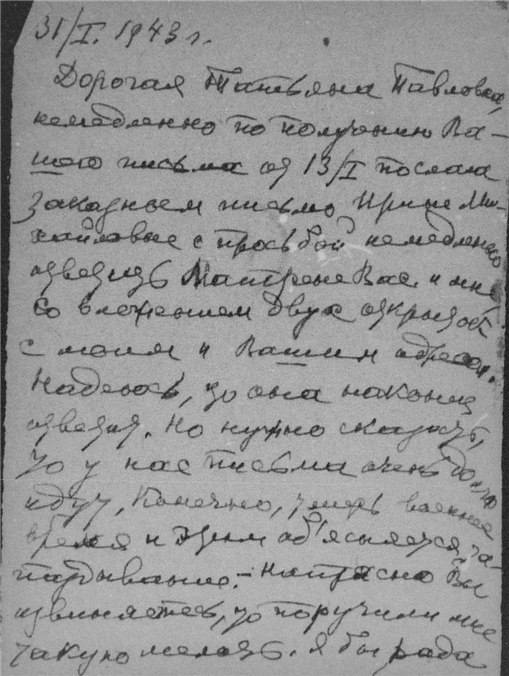 31/I. 1943 г.
Дорогая Татьяна Павловна,
немедленно по получении Ва-
шего письма от 13/I послала
заказным письмо Ирине Ми-
хайловне с просьбой немедленно
ответить Матрене Вас. и мне
со вложением двух открыток
с моим и Вашим адресом.
Надеюсь, что она наконец
ответит. Но нужно сказать,
что у нас письма очень долго
идут, конечно, теперь военное
время и этим объясняется за-
паздывание. – Напрасно Вы
извиняетесь, что поручили мне
такую мелочь. Я бы рада